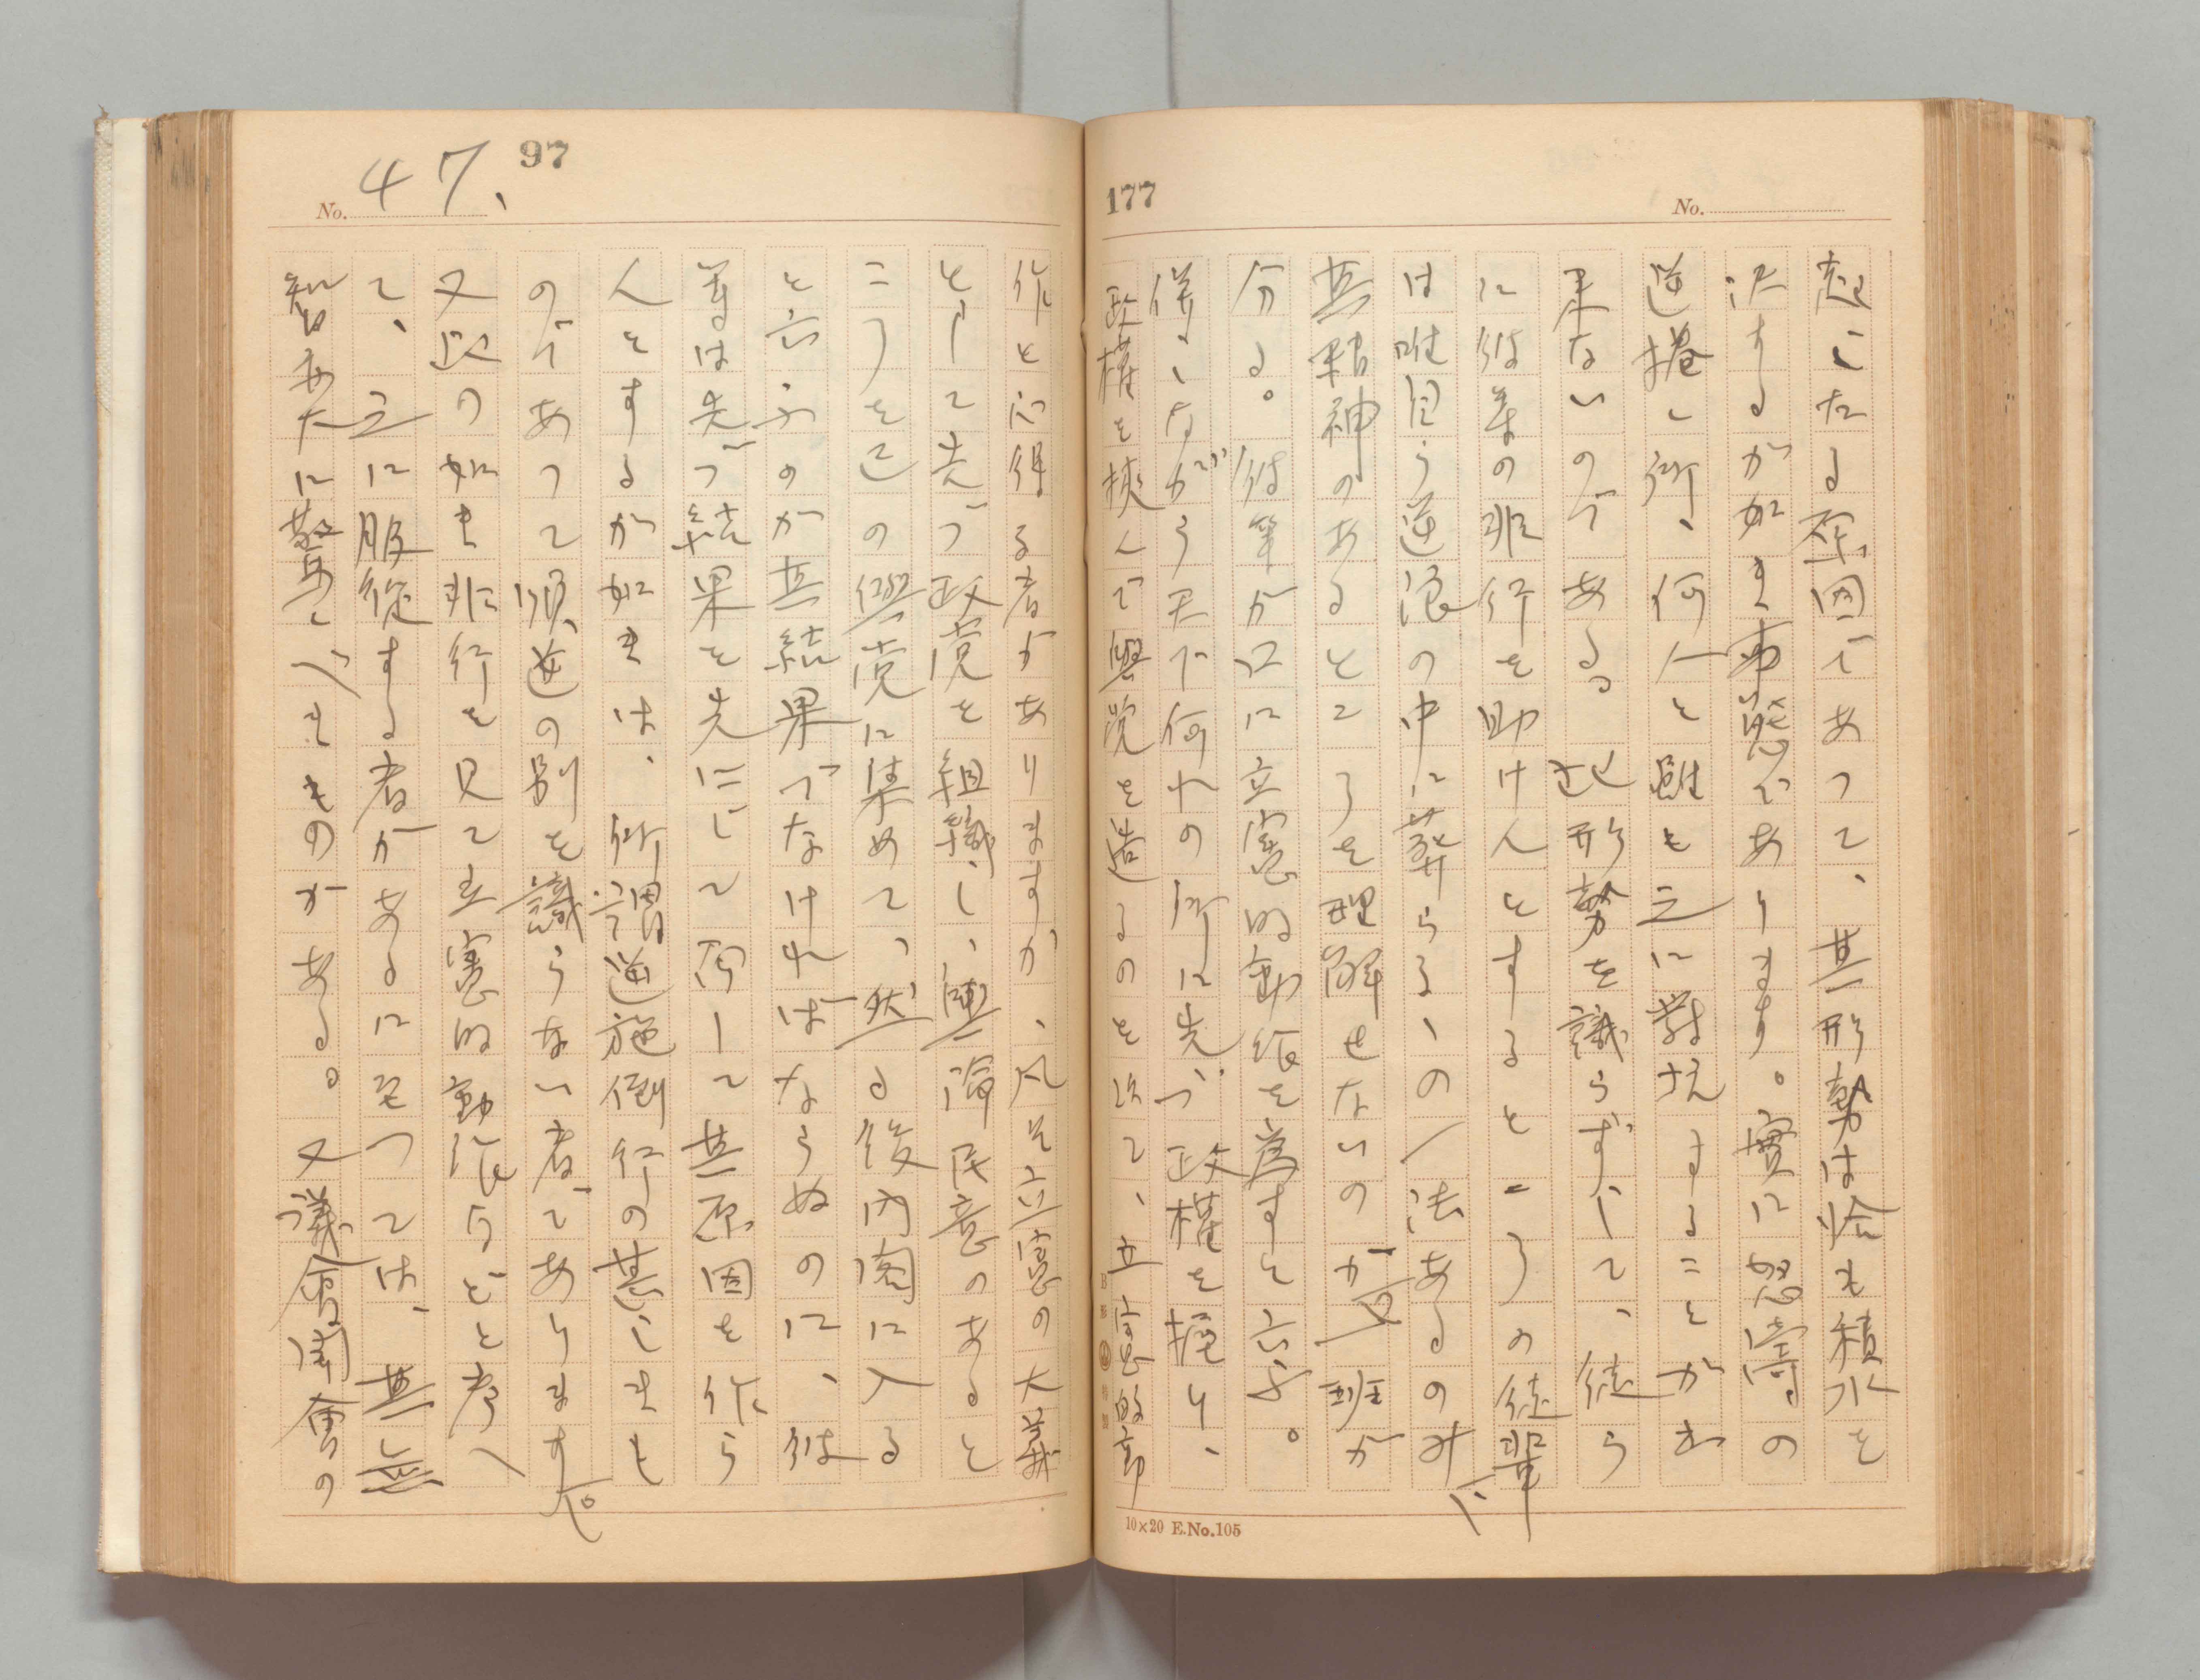 177
No.
起こたる原因であつて、其形勢は恰も積水を
決するが如き事態であります。實に怒濤の
逆捲く所、何人と雖も之に對抗することが出
来ないのである。此形勢を識らずして、徒ら
に彼等の非行を助けんとするところの徒輩
は唯自ら逆浪の中に葬らるゝの一法あるのみ
其精神のあるところを理解せないのが一班が
分る。彼等が口に立憲的動作を為すと云ふ。
併しながら天下何れの所に先づ政権を握り、
政権を挟んで與党を造るのを以て、立憲的動
10×20 E.No.105
97
No. 47、
作と心得る者がありますか、凡そ立憲の大義
として先づ政党を組織し、輿論民意のあると
こうを己の與党に集めて、然る後内閣に入る
と云ふのが其結果でなければならぬのに、彼
等は先づ結果を先にして而して其原因を作ら
んとするが如きは、所謂逆施倒行の甚しきも
のであつて順逆の別を識らない者であります。
又此の如き非行を見て立憲的動作などと考へ
て、之に服從する者があるに至つては、其無
智あたに驚くべきものがある。又議會開會の